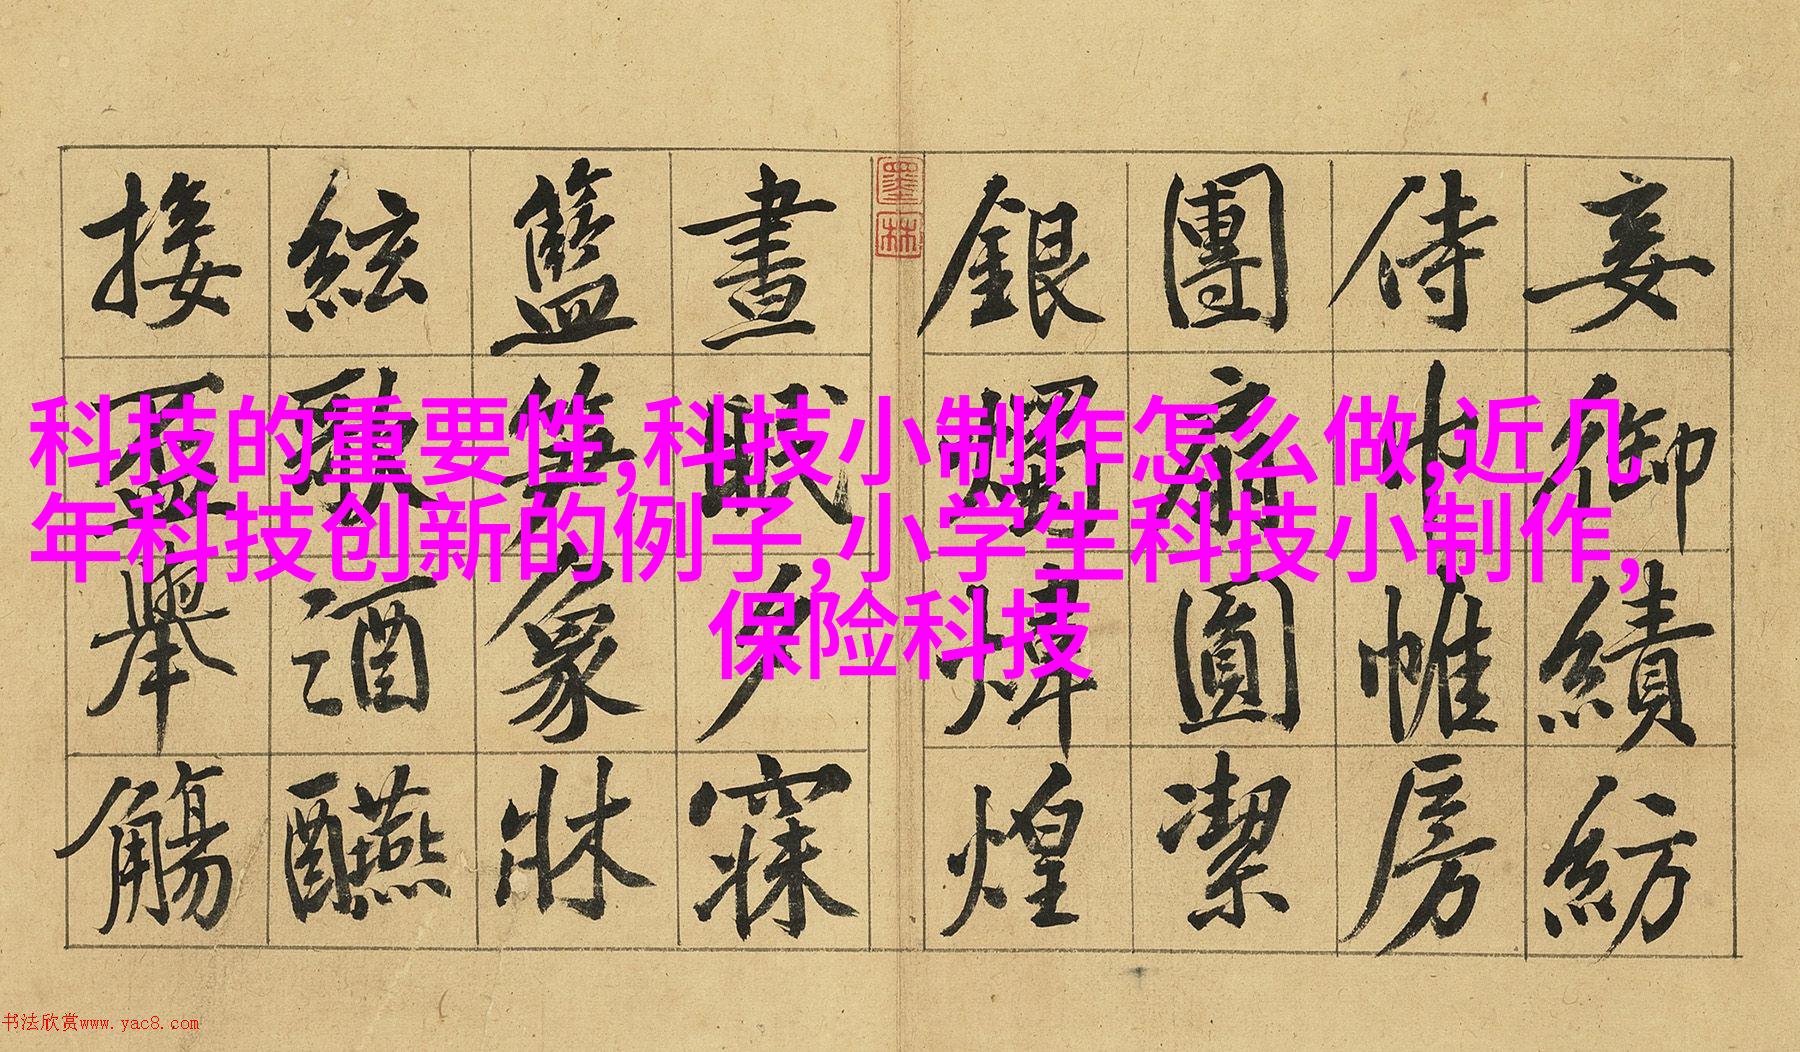 妾御績紡
侍巾帷房
團扇圓潔
銀燭煒煌
墨林
晝眠夕寐
籃笋象牀
絃歌酒醼
接舉觴
科技的重要性,科技小制作怎么做,近几
年科技创新的例子,小学生科技小制作,
保险科技
书法欣赏www.yac8.com